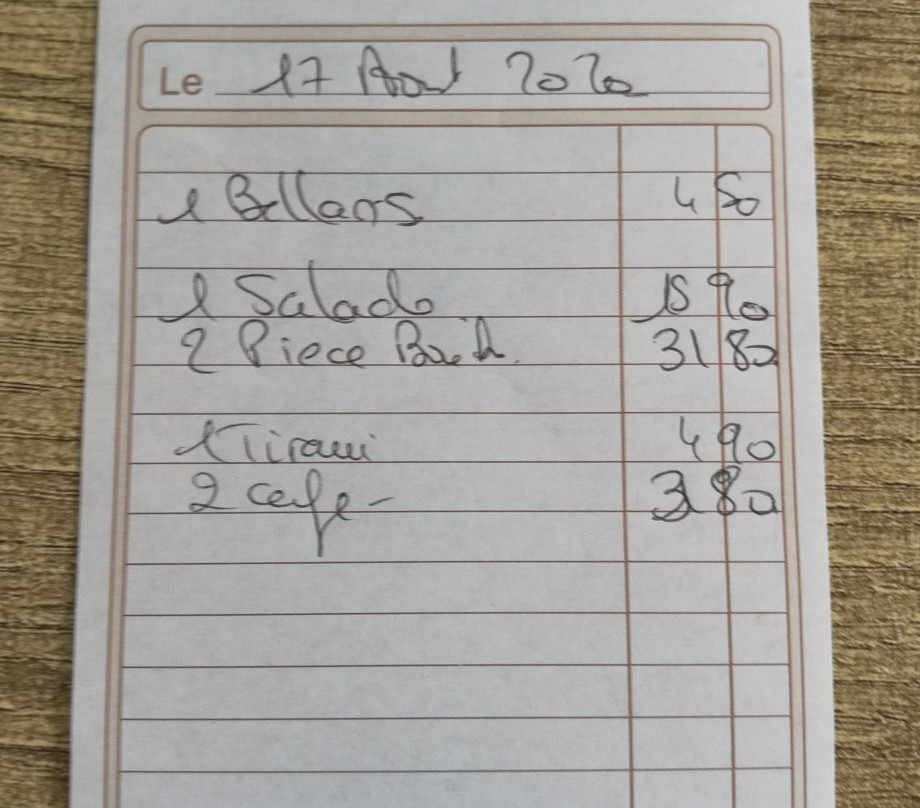 Le 17 Aout 2020
1 Badoit 4 50
1 Salade 15 90
2 Piece Bouch. 31 80
1 Tirami 4 90
2 cafe - 3 80